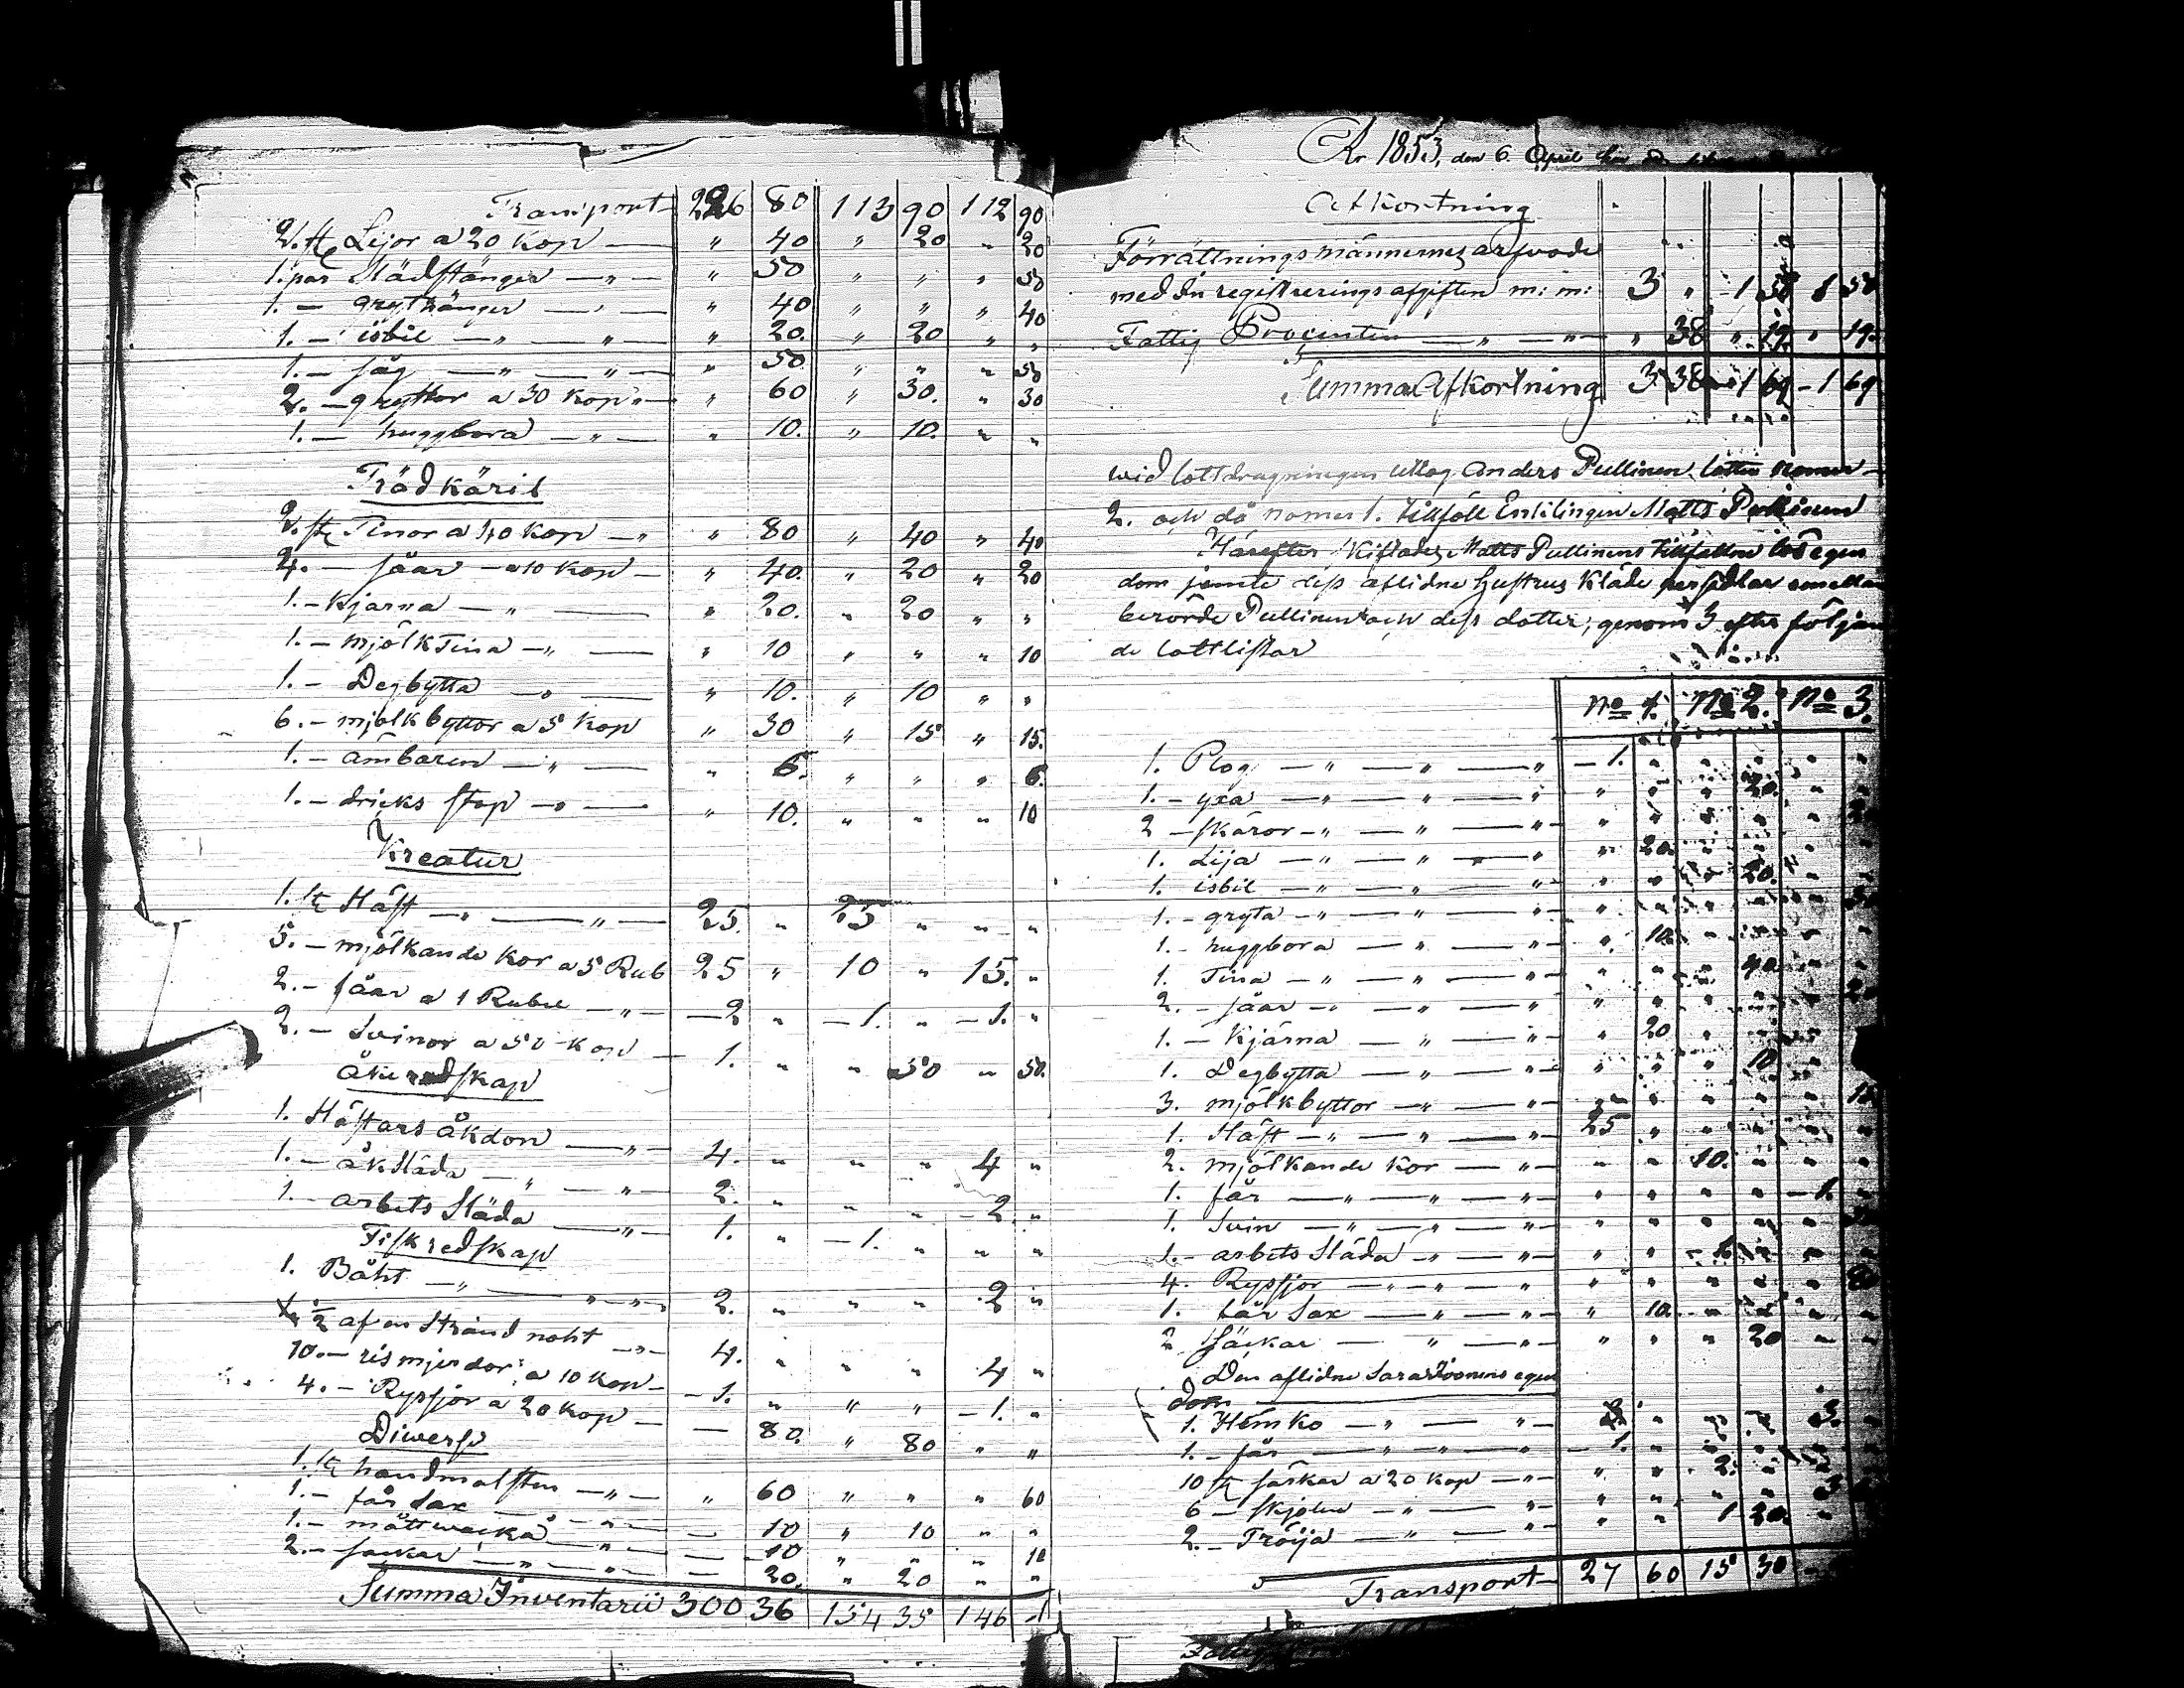 Transport 226 80 113 90 112 90
2. st Lijor a 20 Kop — " 40 " 20 " 20
1. par Städstänger — " — " 50 " " " 50
1. — grythänger — " — " 40 " " " 40
1. — isbil — " — " — " 20. " 20 " "
1. — såg — " — " — " 50 " " " 50
2. — gryttor a 30 Kop " — " 60 " 30. " 30
1. — huggbora — " — " 10. " 10. " "
Trädkäril
2. st Tinor a 40 Kop — " " 80 " 40 " 40
4. — såar — a 10 Kop — " 40. " 20 " 20
1. — Kjärna — " — " 20. " 20 " "
1. — mjölk Tina — " — " 10 " " " 10
1. — Degbytta — " — " 10. " 10 " "
6. — mjölkbyttor a 5 Kop " 30 " 15 " 15.
1. — ämbaren — " — " 6. " " " 6.
1. — dricks stop — " — " 10. " " " 10
Kreatur
1. st Häst — " — " — 25. " 25 " " "
5. — mjölkande Kor a 5 Rub 25 " 10 " 15. "
2. — såar a 1 Rubel — " — — 2 " — 1. " — 1. "
2. — Svinor a 50 Kop — 1. " " 50 " 50.
Åkeredskap
1. Hästars åkdon — " — 4. " " " 4 "
1. — åk Släda — " — " — 2. " " " — 2. "
1. — arbets Släda — " — 1. " — 1. " " "
Fiskredskap
1. Båht — " — " " " 2. " " " 2 "
½ af en Strand noht — " — 4. " " " 4 "
10. — rismjerdor a 10 Kop — — 1. " " " — 1. "
4. — Ryssjor a 20 Kop — — 80. " 80 " "
Diverse
1. st handmalsten — " — " 60 " " " 60
1. — får Sax — " — — 10 " 10 " "
1. — mättwacka — " — — 10 " " " 10
2. — säckar — " — " — — 20. " 20 " "
Summa Inventarii 300 36 154 35 146 1
År 1853, den 6 April
Afkortning
Förrättningsmännernes arfvode
med In registrerings afgiften m: m: 3 " — 1 50 1 50
Fattig Procenten — " — " — " 38 " 19. " 19.
Summa Afkortning 3 38 — 1 69 — 1 69
wid lottdragningen uttog Anders Pullinen lotten nomer
2. och då nomer 1. tillföll Enklingen Matts Pullinen
Härefter skiftades Matts Pullinens tillfallne lös egen
dom jemte dess aflidne Hustrus Kläde persedlar emellan
berörde Pullinen och dess dotter, genom 3 efter följan
de lottlistor
No 1. No 2. No 3.
1. Plog — " — " — " — 1. " " " " "
1. — yxa — " — " — " " " " 20. " "
2 — skäror — " — " — " — " " " " " 20
1. Lija — " — " — " " 20. " " " "
1. isbil — " — " — " — " " " 20. " "
1. — gryta — " — " — " — " " " " " 30
1. — huggbora — " — " — " 10. " " " "
1. Tina — " — " — " — " " " 40. " "
2. — såar — " — " — " " " " " " 20
1. — Kjärna — " — " — " 20 " " " "
1. Degbytta — " — " — " " " 10 " "
3. mjölkbyttor — " — " — " " " " " 15
1. Häst — " — " — " — 25 " " " " "
2. mjölkande Kor — " — " " 10. " " "
1. får — " — " — " — " " " " — 1. "
1. Svin — " — " — " — " " " " "
1. — arbets Släda — " — " — " " — 1. " " "
4. Ryssjor — " — " — " " " " " " 80
1. får Sax — " — " — " 10. " " " "
2 säckar — " — " — " " " 20 " "
Den aflidne Sara Ivonens egen
dom —
1. Hemko — " — " — " " " 3. "
1. — får — " — " — " — 1. " " " " "
10 st särkar a 20 Kop — " — " " 2. " " "
6 — skjolar — " — " — " " " " 3
2. — Tröija — " — " — " " 1 20. " "
Transport — 27 60 15 30